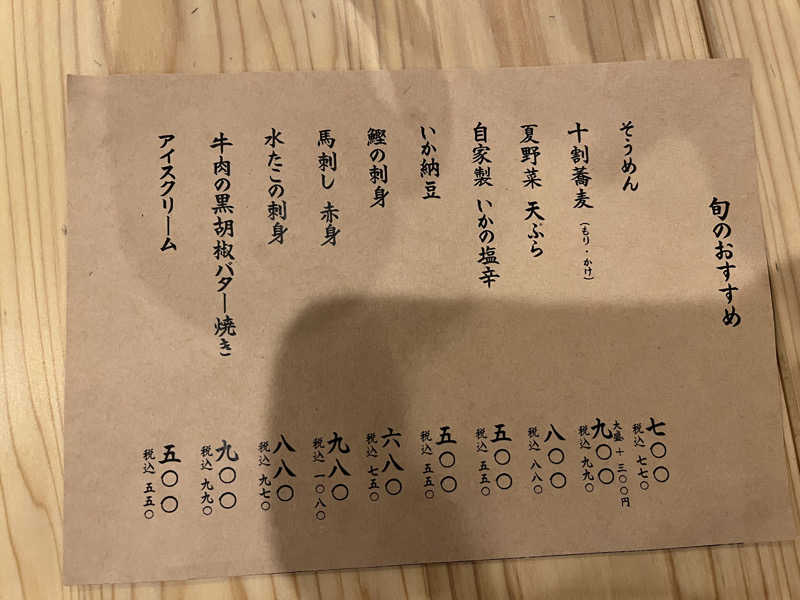 旬のおすすめ
そうめん 七〇〇
税込 七七〇
十割蕎麦（もり・かけ） 九〇〇
大盛 + 三〇〇円
税込 九九〇
夏野菜 天ぷら 八〇〇
税込 八八〇
自家製 いかの塩辛 五〇〇
税込 五五〇
いか納豆 五〇〇
税込 五五〇
鰹の刺身 六八〇
税込 七五〇
馬刺し 赤身 九八〇
税込 一〇八〇
水たこの刺身 八八〇
税込 九七〇
牛肉の黒胡椒バター焼き 九〇〇
税込 九九〇
アイスクリーム 五〇〇
税込 五五〇